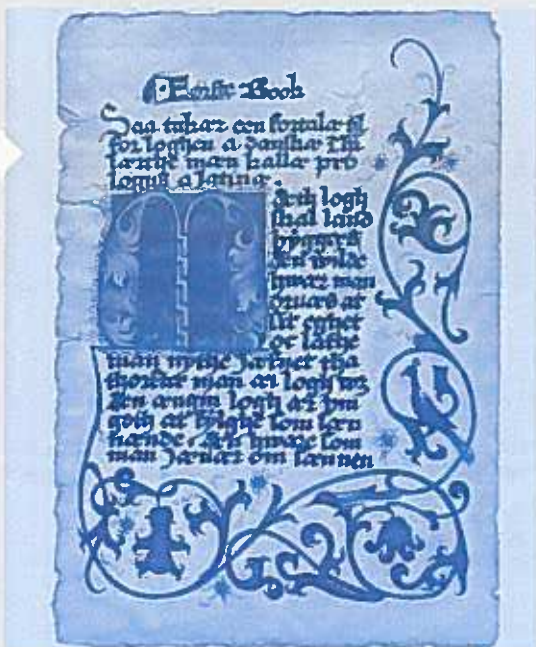 Første Book
Saa takær een fortalæ til
for loghen a danskæ thu
læthe mæn kallæ pro
logus a latinæ.
Mæth logh
skal land
byggæs
æn wilde
hwær man
oruæs at
sit eghet
oc lathe
mæn nythe jafnet tha
thorfte man æi logh wz
æn ængin logh ær jam
goth at fylghe som sæn
nænde. æn hwaræ som
mæn jæuær om sannen